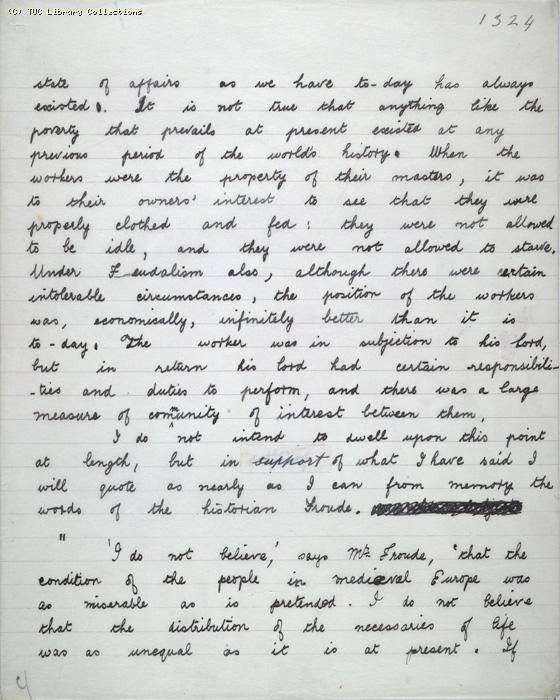 (C) TUC Library Collections
1324
state of affairs as we have to-day has always
existed. It is not true that anything like the
poverty that prevails at present existed at any
previous period of the world's history. When the
workers were the property of their masters, it was
to their owners' interest to see that they were
properly clothed and fed: they were not allowed
to be idle, and they were not allowed to starve.
Under Feudalism also, although there were certain
intolerable circumstances, the position of the workers
was, economically, infinitely better than it is
to-day. The worker was in subjection to his lord,
but in return his lord had certain responsibili-
-ties and duties to perform, and there was a large
measure of community of interest between them.
I do not intend to dwell upon this point
at length, but in support of what I have said I
will quote as nearly as I can from memory the
words of the historian Froude.
" 'I do not believe,' says Mr Froude, 'that the
condition of the people in mediæval Europe was
as miserable as is pretended. I do not believe
that the distribution of the necessaries of life
was as unequal as it is at present. If